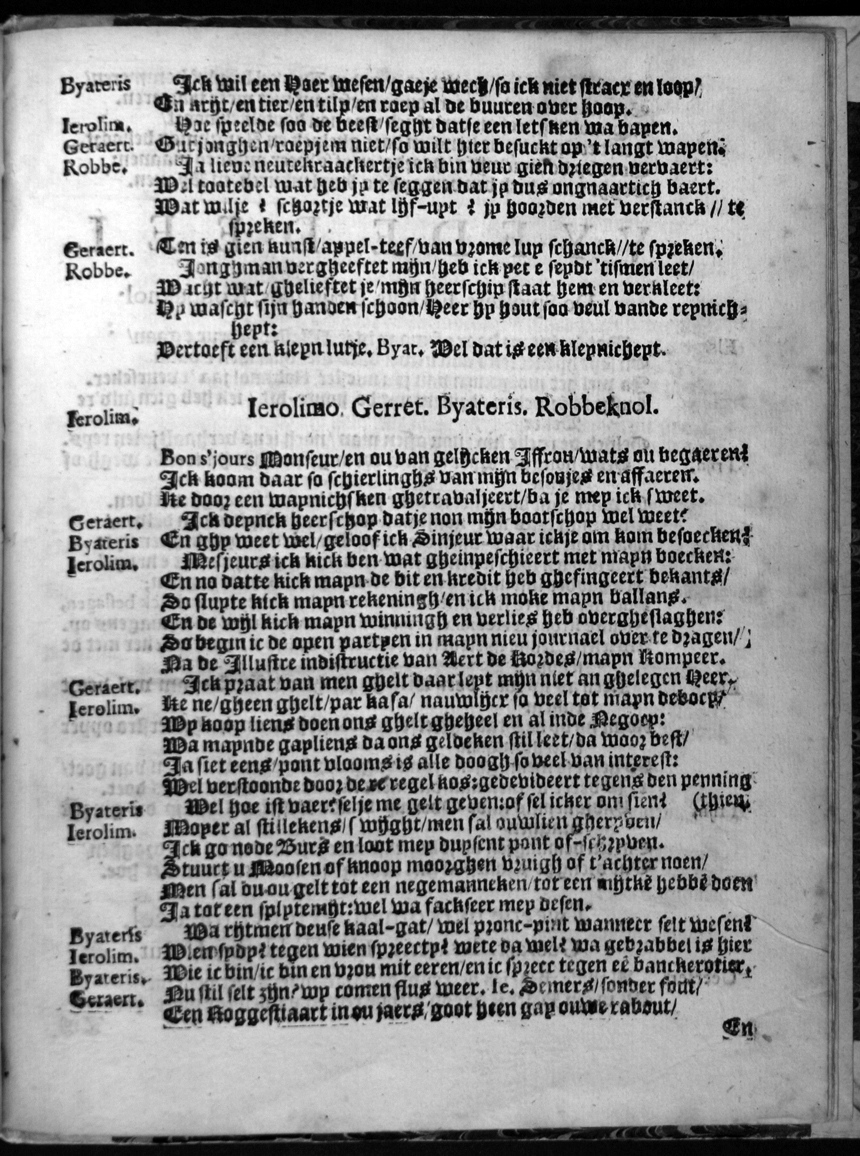 Byateris Ick wil een Hoer wesen/gaeje wech/so ick niet stracx en loop/
En krijt/en tier/en tilp/en roep al de buuren over hoop.
Ierolim. Hoe speelde soo de beest/seght datse een letsken wa bapen.
Geraert. Out jonghen/roepjem niet/so wilt hier besuckt op 't langt wapen.
Robbe. Ja lieve neutekraackertje ick bin veur gien driegen vervaert:
Wel tootebel wat heb jy te seggen dat jy dus ongnaartich baert.
Wat wilje ? schortje wat lijf-upt ? jy hoorden met verstanck // te
spreken.
Geraert. Ten is gien kunst/appel-teef/van vrome luy schanck//te spreken.
Robbe. Jonghman vergheeftet mijn/heb ick yet e seydt 'tismen leet/
Wacht wat/ghelieftet je/mijn heerschip staat hem en verkleet:
Hy wascht sijn handen schoon/Heer hy hout soo veul vande reynich-
heyt:
Vertoeft een kleyn lutje. Byat. Wel dat is een kleynicheyt.
Ierolimo. Gerret. Byateris. Robbeknol.
Ierolim.
Bon s'jours Monseur/en ou van gelijcken Iffrou/wats ou begaeren?
Ick koom daar so schierlinghs van mijn besoujes en affaeren.
Ke door een waynichsken ghetravaljeert/ba je mey ick sweet.
Geraert. Ick deynck heerschop datje non mijn bootschop wel weet?
Byateris En ghy weet wel/geloof ick Sinjeur waar ickje om kom besoecken?
Ierolim. Mesjeurs ick kick ben wat gheinpeschieert met mayn boecken:
En no datte kick mayn de bit en kredit heb ghefingeert bekants/
So slupte kick mayn rekeningh/en ick moke mayn ballans.
En de wijl kick mayn winningh en verlies heb overgheslaghen:
So begin ic de open partyen in mayn nieu journael over te dragen/
Na de Illustre indistructie van Aert de Kordes/mayn Kompeer.
Geraert. Ick praat van men ghelt daar leyt mijn niet an ghelegen Heer.
Ierolim. Ke ne/gheen ghelt/par kasa/ nauwlijcx so veel tot mayn
Wy koop liens doen ons ghelt gheheel en al inde Negocy:
Wa maynde gapliens da ons geldeken stil leet/da woor best/
Ja siet eens/pont vlooms is alle doogh so veel van interest:
Wel verstoonde door dese regel kos:gedevideert tegens den penning
(thien.
Byateris Wel hoe ist vaer?selje me gelt geven:of sel icker om sien?
Ierolim. Moyer al stillekens/swijght/men sal ouwlien gheryven/
Ick go node Burs en loot mey duysent pont of-schryven.
Stuurt u Moosen of knoop moorghen vruigh of t'achter noen/
Men sal du ou gelt tot een negemanneken/tot een mijtkē hebbē doen
Ja tot een splytemijt:wel wa fackseer mey desen.
Byateris Wa rijtmen deuse kaal-gat/ wel pronc-pint wanneer selt wesen?
Ierolim. Wien spdy? tegen wien spreecty? wete da wel? wa gebrabbel is hier
Byateris. Wie ic bin/ic bin en vrou mit eeren/en ic sprecc tegen eē banckerotier.
Geraert. Nu stil selt zijn?wy comen flus weer. Ie. Semers/sonder fout/
Een Koggestiaart in ou jaers/goot heen gay ouwe rabout/
En